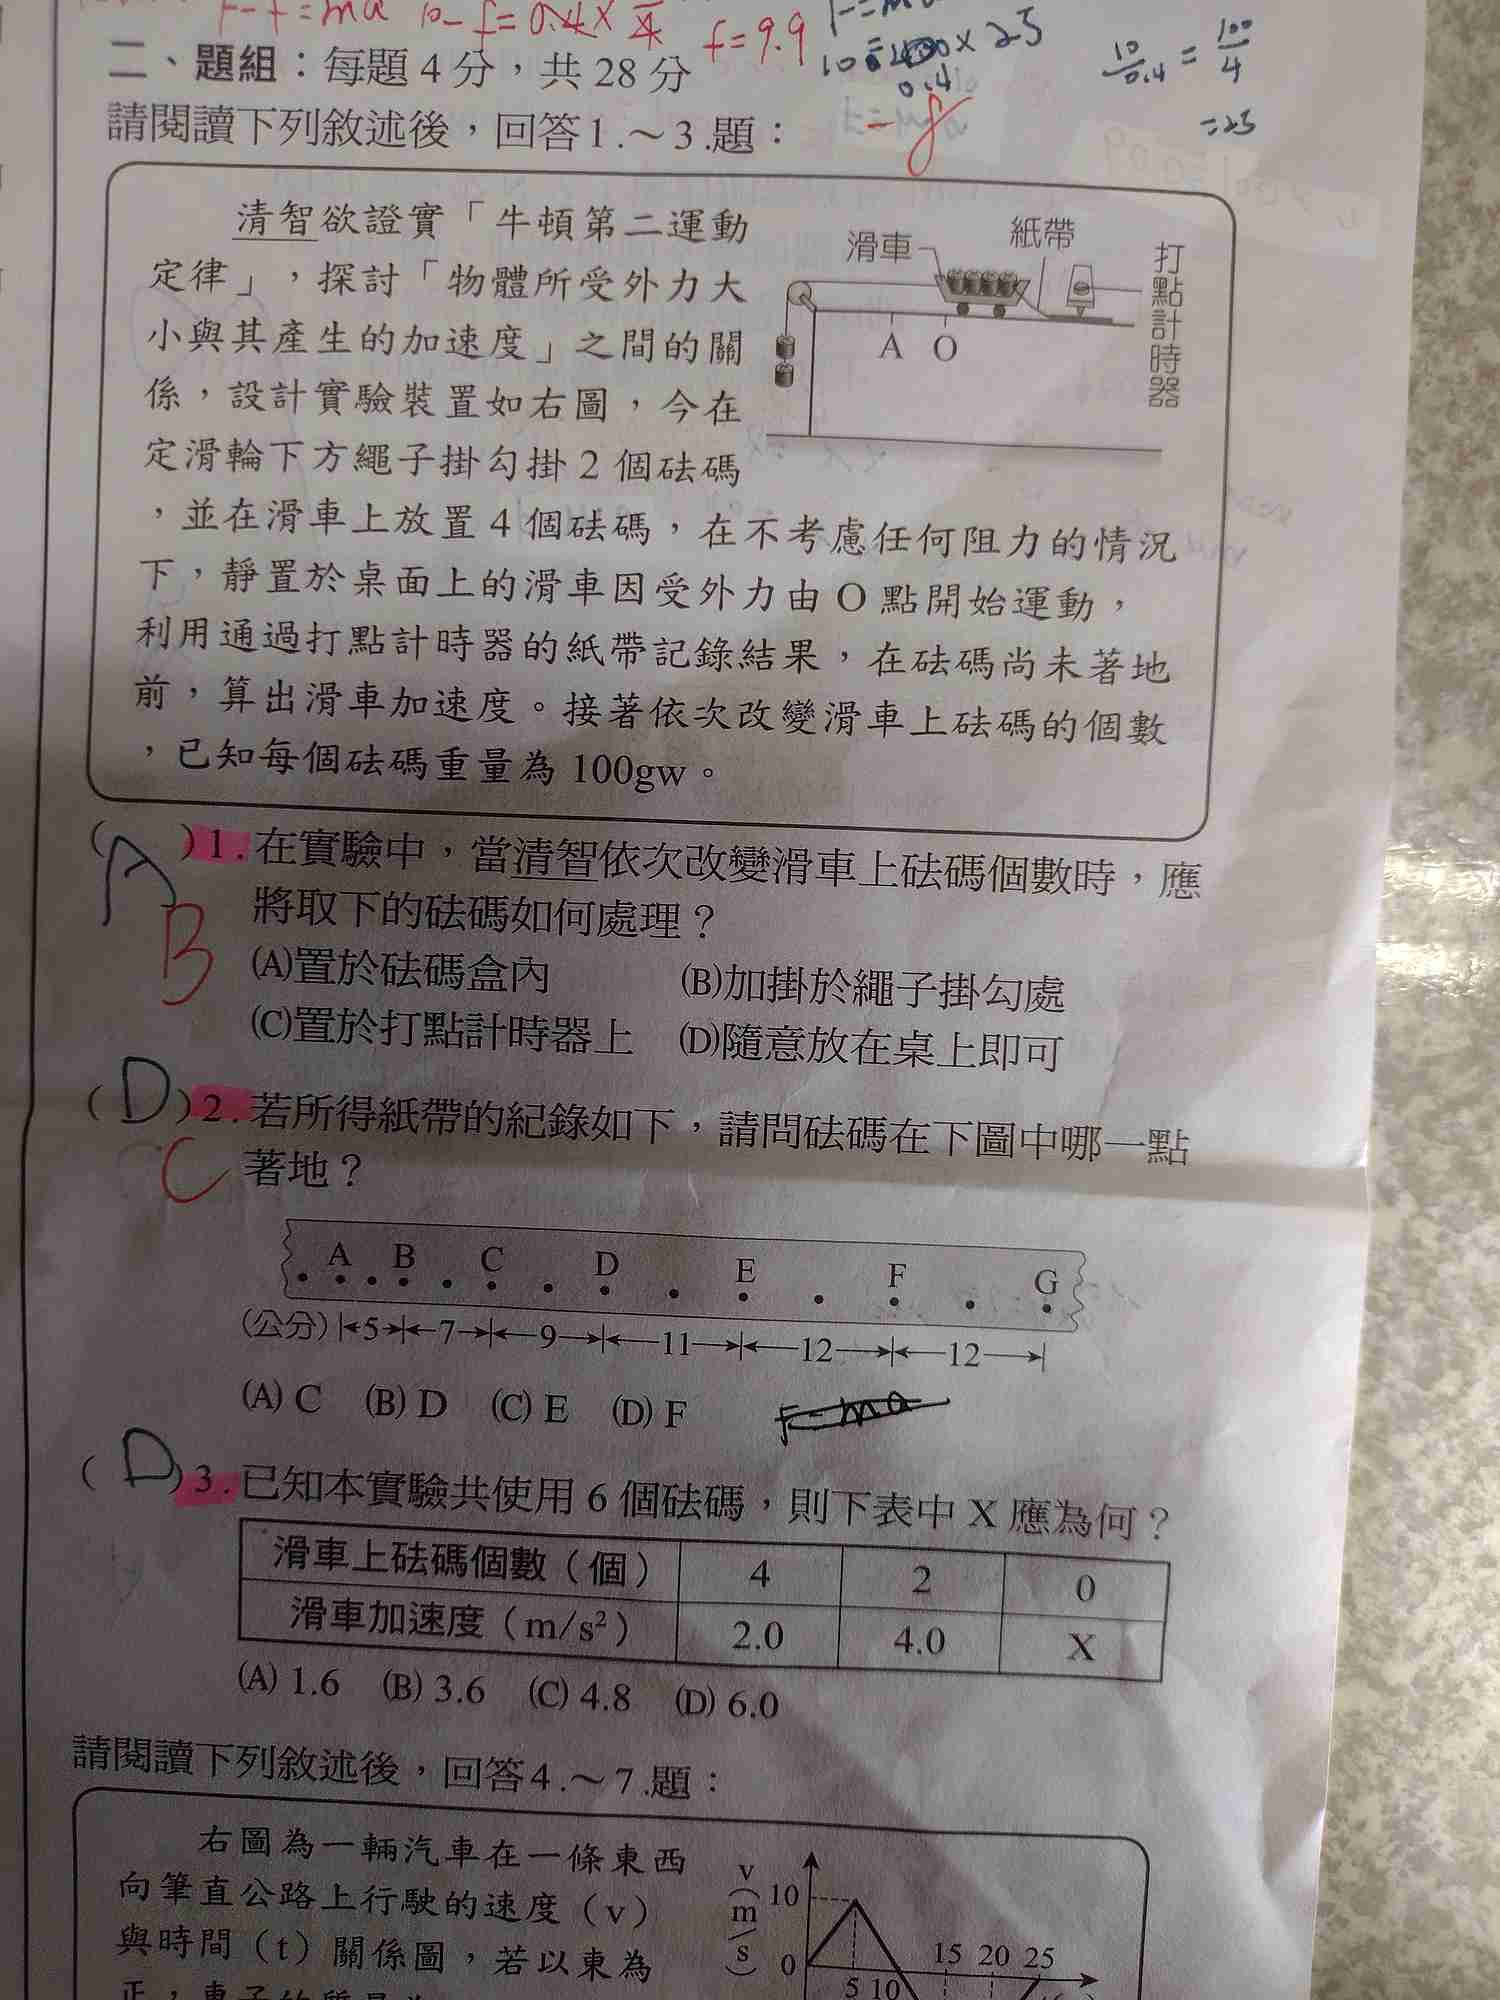 10-f=0.4×
f=9.9
10
×25
0.4
10/0.4 = 100/4
=25
-8
二、題組：每題4分，共28分
請閱讀下列敘述後，回答1.～3.題：
清智欲證實「牛頓第二運動
定律」，探討「物體所受外力大
小與其產生的加速度」之間的關
係，設計實驗裝置如右圖，今在
定滑輪下方繩子掛勾掛2個砝碼
，並在滑車上放置4個砝碼，在不考慮任何阻力的情況
下，靜置於桌面上的滑車因受外力由O點開始運動，
利用通過打點計時器的紙帶記錄結果，在砝碼尚未著地
前，算出滑車加速度。接著依次改變滑車上砝碼的個數
，已知每個砝碼重量為100gw。
滑車
紙帶
打點計時器
A O
(A)1.在實驗中，當清智依次改變滑車上砝碼個數時，應
將取下的砝碼如何處理？
B
(A)置於砝碼盒內 (B)加掛於繩子掛勾處
(C)置於打點計時器上 (D)隨意放在桌上即可
(D)2.若所得紙帶的紀錄如下，請問砝碼在下圖中哪一點
著地？
C
A B C D E F G
(公分) 5 7 9 11 12 12
(A) C (B) D (C) E (D) F
F=ma
(D)3.已知本實驗共使用6個砝碼，則下表中X應為何？
滑車上砝碼個數（個） 4 2 0
滑車加速度（m/s²） 2.0 4.0 X
(A) 1.6 (B) 3.6 (C) 4.8 (D) 6.0
請閱讀下列敘述後，回答4.～7.題：
右圖為一輛汽車在一條東西
向筆直公路上行駛的速度（v）
與時間（t）關係圖，若以東為
v(m/s)
10
0
5 10
15 20 25